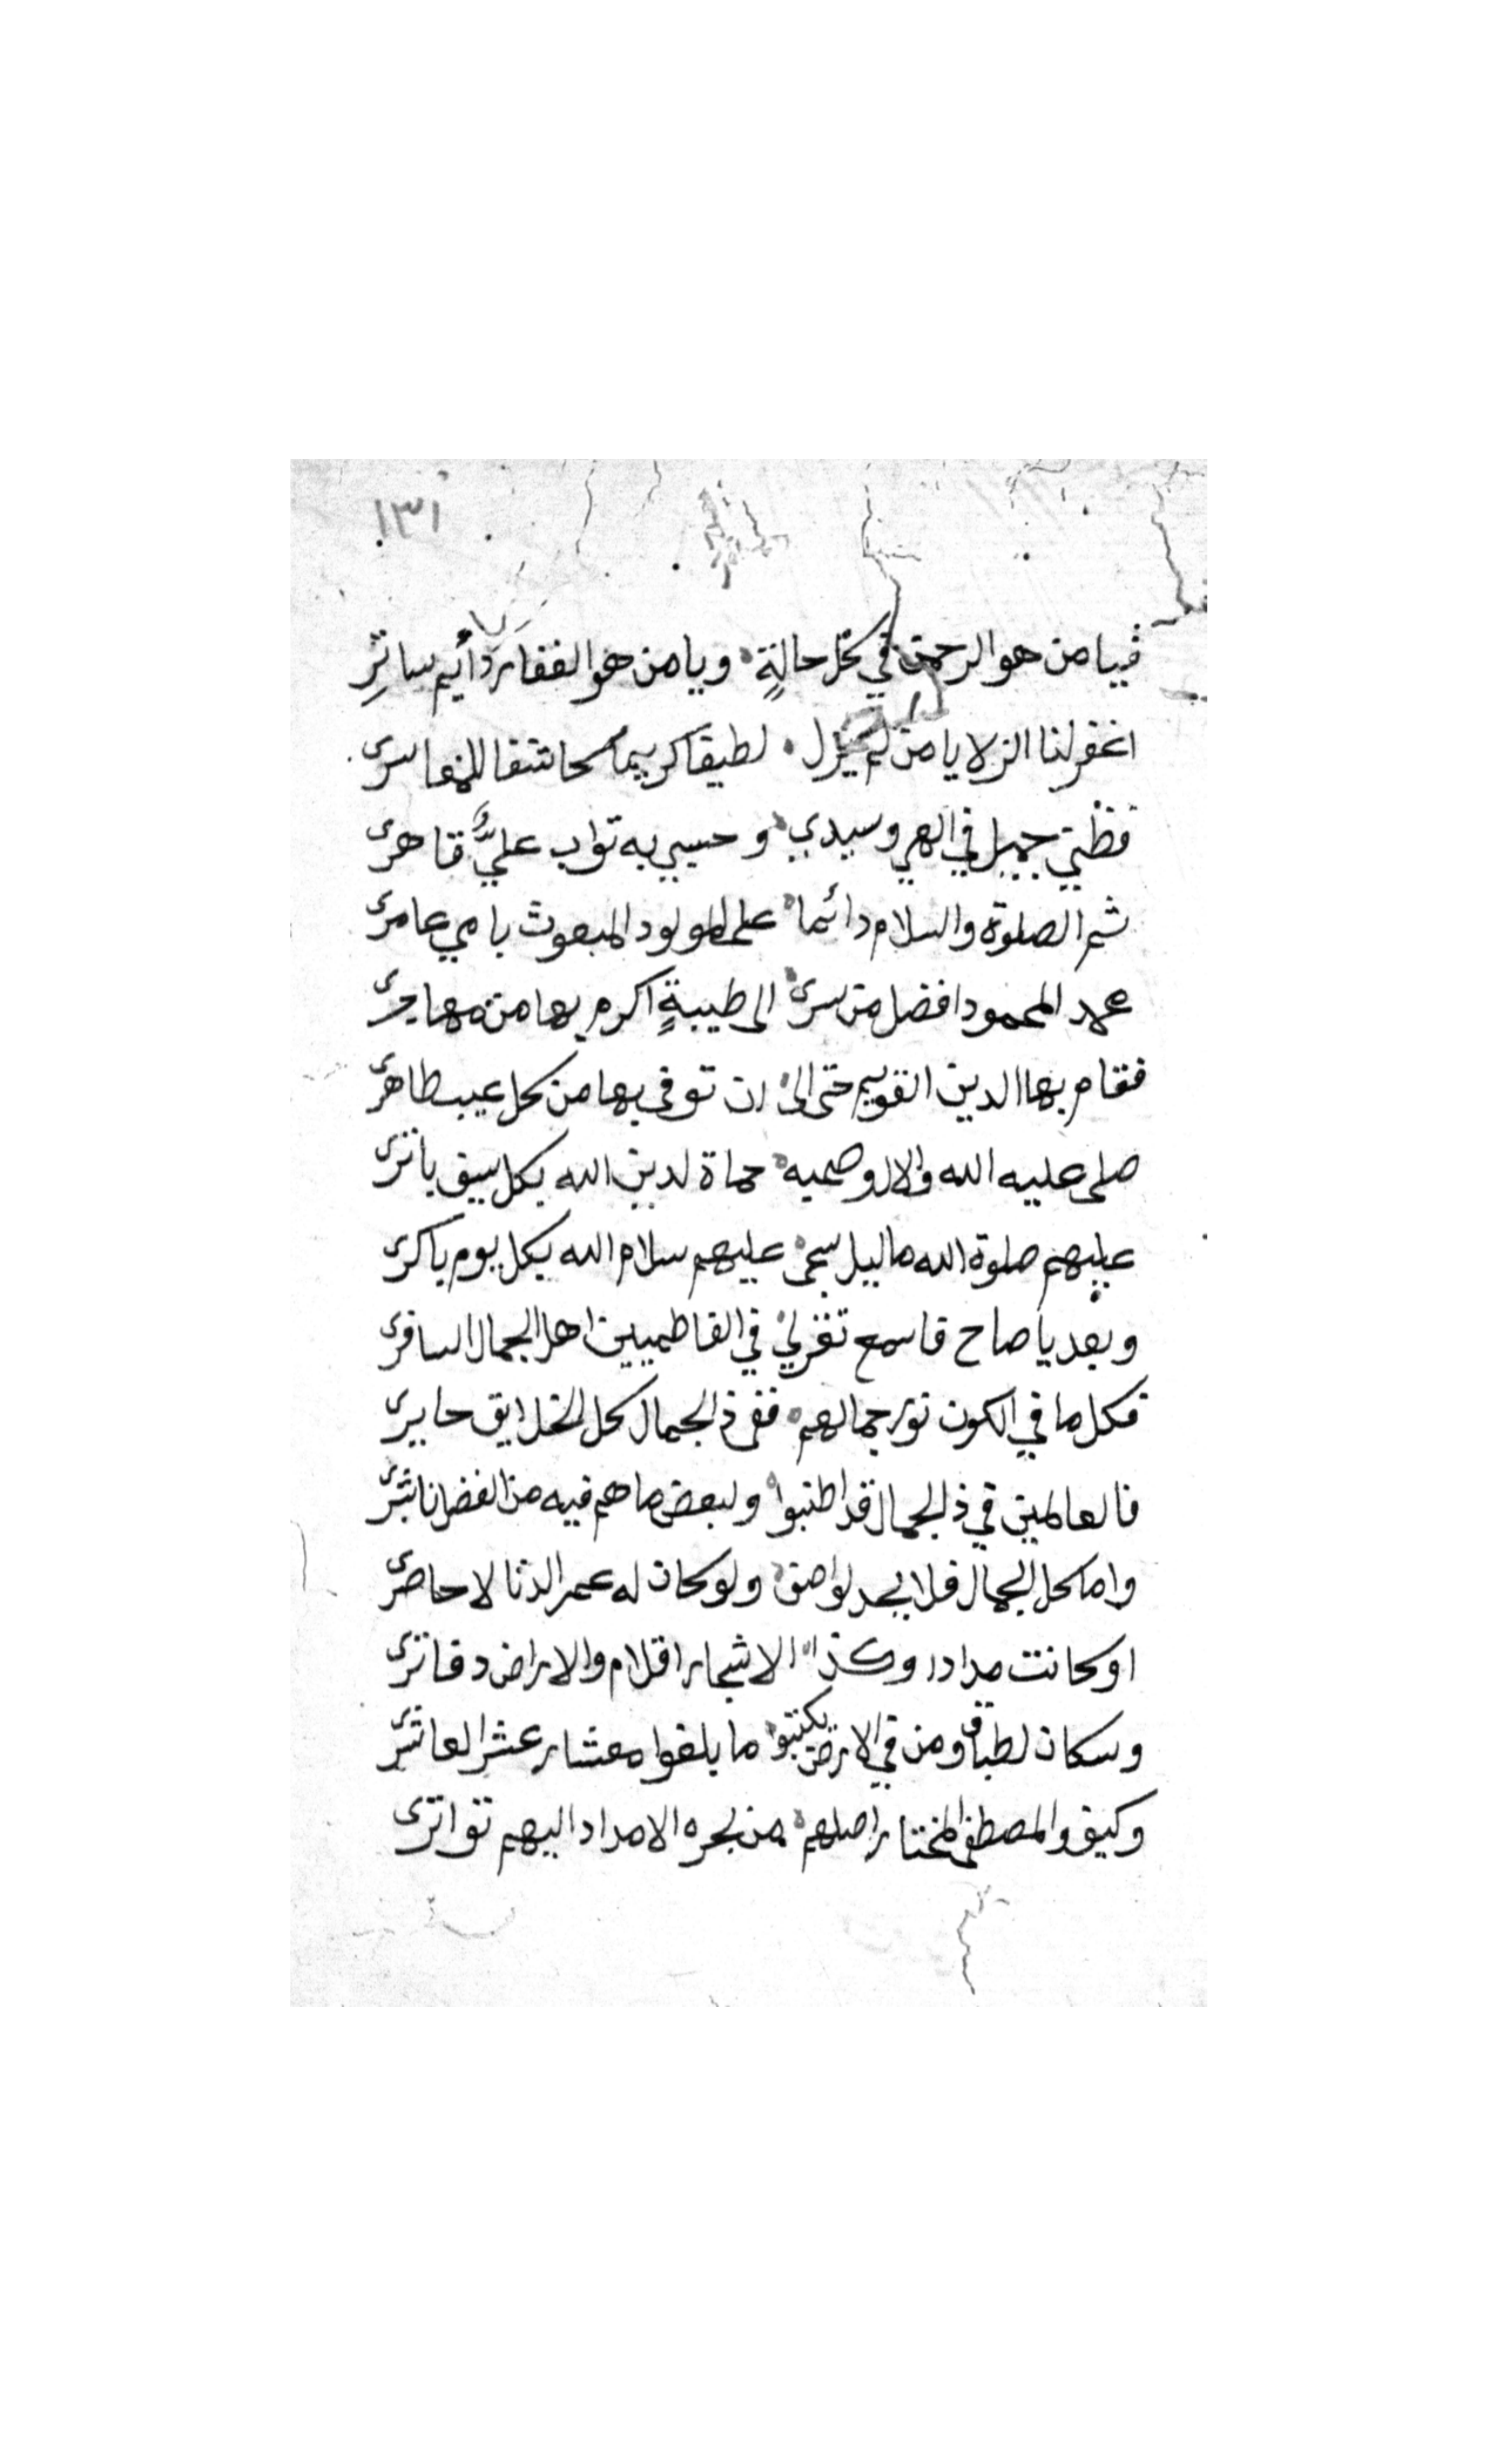 ١٣١
فيا من هو الرحمن في كل حالةٍ ويا من هو الغفار دأيم ساترِ
اغفر لنا الزلا يا من لم يزل لطيفا كريما كاشفا للمعاسرى
فظني جميل في الهي وسيدي وحسبي به تواب عليَّ قاهرى
ثم الصلوة والسلام دائما على المولود المبعوث بامي عامرى
محمد المحمود افضل من سرى الى طيبةٍ اكرم بها من مهاجرى
فقام بها الدين القويم حتى الى ان توفى بها من كل عيب طاهرى
صلى عليه الله والال وصحبه حماة لدين الله بكل سيف باترى
عليهم صلوة الله ما ليل سجى عليهم سلام الله بكل يوم باكرى
وبعد يا صاح فاسمع تغزلي في الفاطميين اهل الجمال السافرى
فكل ما في الكون نور جمالهم ففى ذ الجمال كل الخلايق حايرى
فالعالمين في ذ الجمال قد اطنبوا ولبعض ما هم فيه من الفضل ناشرى
واما كل الجمال فلا يحد لواصف ولو كان له عمر الدنا لا حاصرى
او كانت مدادا وكذا الاشجار اقلام والاراض دفاترى
وسكان لطباق ومن في الارض يكتبوا ما بلغوا معشار عشر العاشرى
وكيف والمصطفى المختار اصلهم من بحره الامداد اليهم تواترى